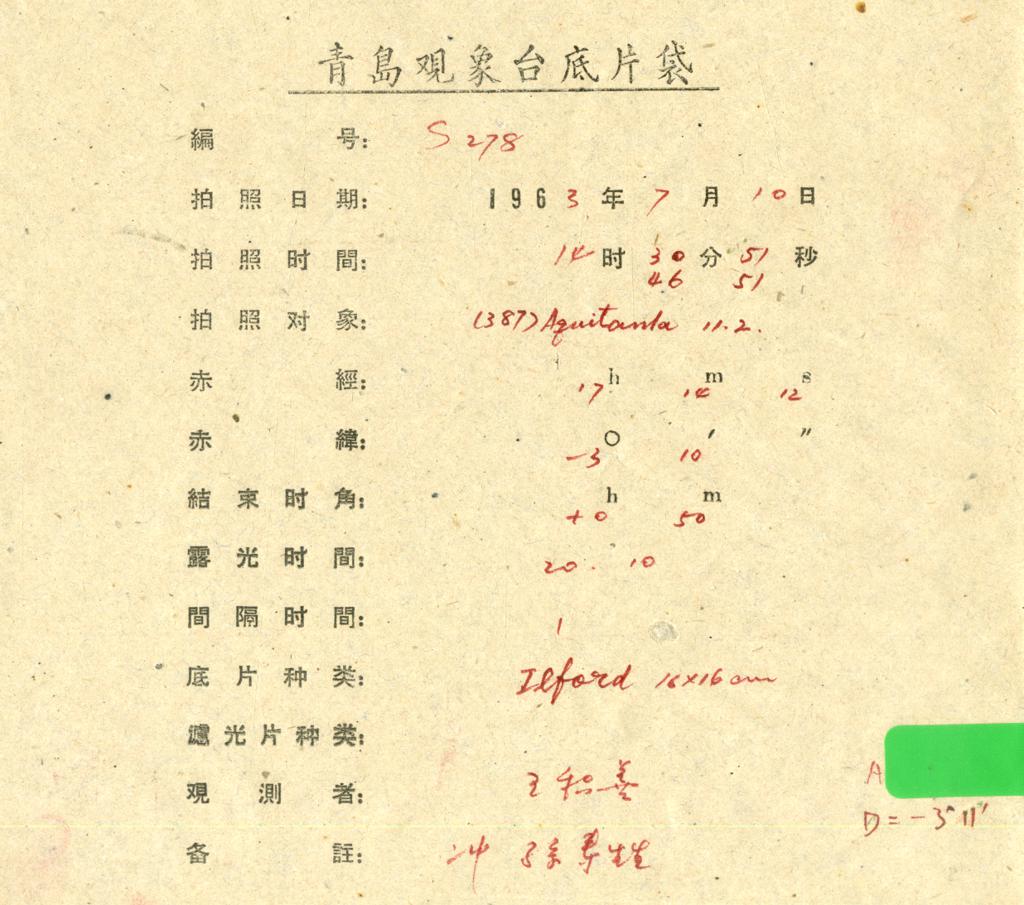 青島观象台底片袋
編号: S 278
拍照日期: 1963年7月10日
拍照时間: 14时30分51秒
46 51
拍照对象: (387) Aquitania 11.2.
赤經: 17h 14m 12s
赤緯: -3° 10′ ″
結束时角: +0h 50m
露光时間: 20. 10
間隔时間: 1
底片种类: Ilford 16×16cm
濾光片种类:
观測者: 王
A
D = -3°11′
备註: 冲